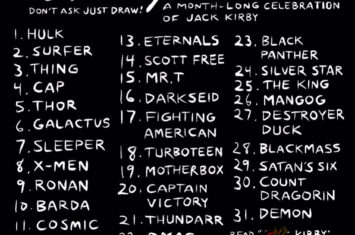 DON'T ASK JUST DRAW!
A MONTH-LONG CELEBRATION
OF JACK KIRBY
1. HULK
2. SURFER
3. THING
4. CAP
5. THOR
6. GALACTUS
7. SLEEPER
8. X-MEN
9. RONAN
10. BARDA
11. COSMIC
13. ETERNALS
14. SCOTT FREE
15. MR.T
16. DARKSEID
17. FIGHTING
AMERICAN
18. TURBOTEEN
19. MOTHERBOX
20. CAPTAIN
VICTORY
21. THUNDARR
23. BLACK
PANTHER
24. SILVER STAR
25. THE KING
26. MANGOG
27. DESTROYER
DUCK
28. BLACKMASS
29. SATAN'S SIX
30. COUNT
DRAGORIN
31. DEMON
KIRBY